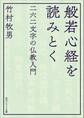 般若心経を
読みとく
二六二文字の仏教入門
竹村牧男